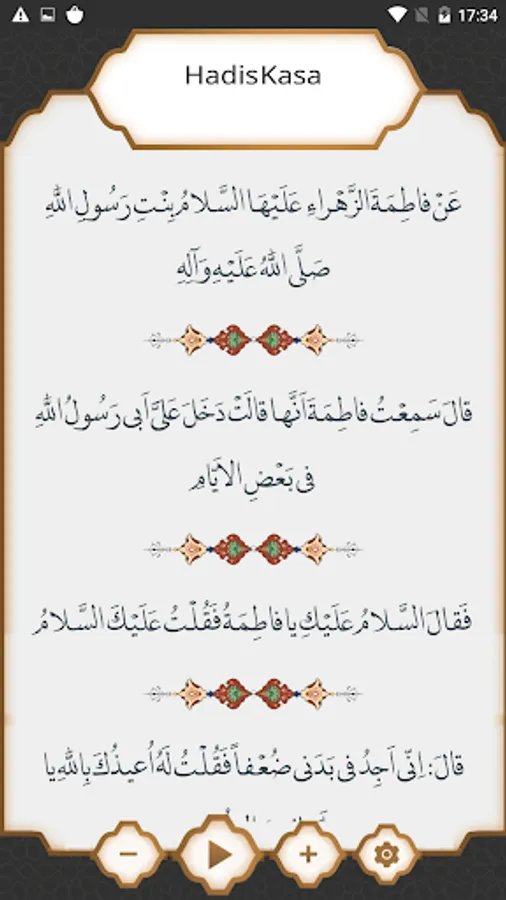 17:34
HadisKasa
عَنْ فاطِمَةَ الزَّهْراءِ عَلَيْهَا السَّلامُ بِنْتِ رَسُولِ اللهِ
صَلَّى اللهُ عَلَيْهِ وَآلِهِ
قالَ سَمِعْتُ فاطِمَةَ اَنَّها قالَتْ دَخَلَ عَلَىَّ اَبى رَسُولُ اللهِ
فى بَعْضِ الاَيّامِ
فَقالَ السَّلامُ عَلَيْكِ يا فاطِمَةُ فَقُلْتُ عَلَيْكَ السَّلامُ
قالَ: اِنّى اَجِدُ فى بَدَنى ضُعْفاً فَقُلْتُ لَهُ اُعيذُكَ بِاللهِ يا